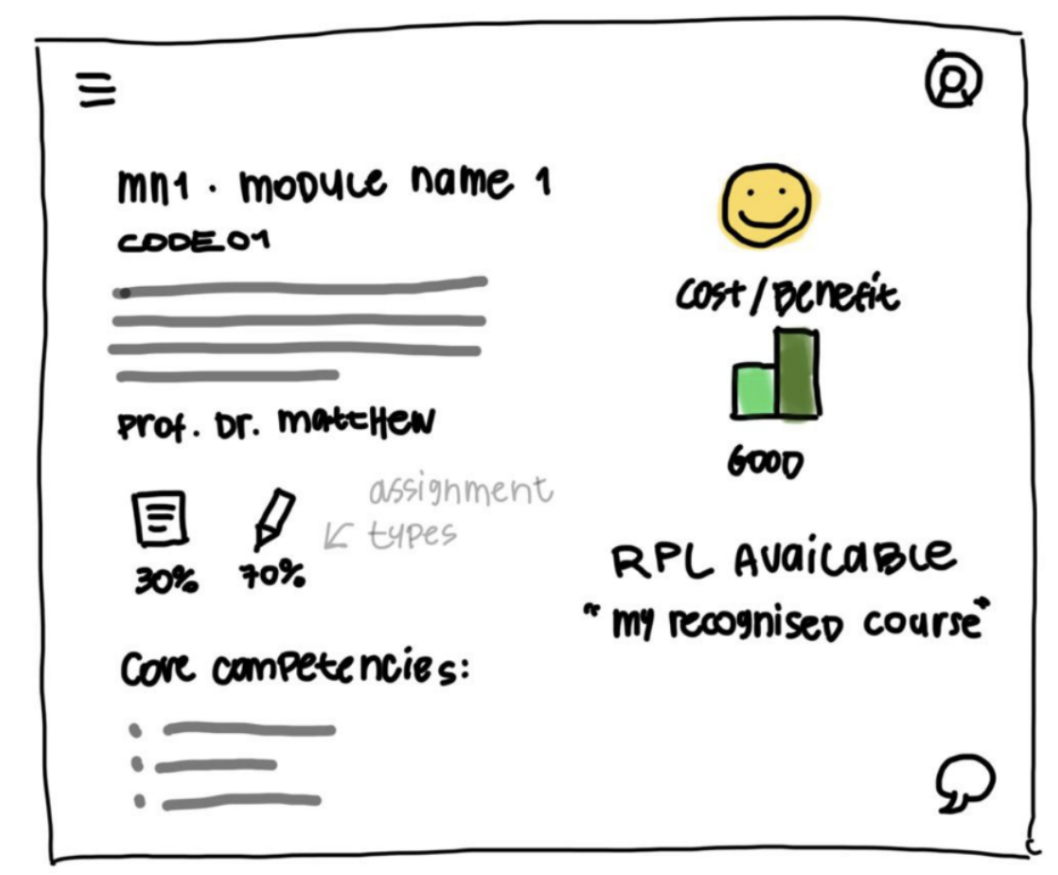 mn1 · module name 1
CODE01
Prof. Dr. Matthew
30% 70%
assignment
types
Core competencies:
Cost/Benefit
GOOD
RPL Available
"my recognised course"